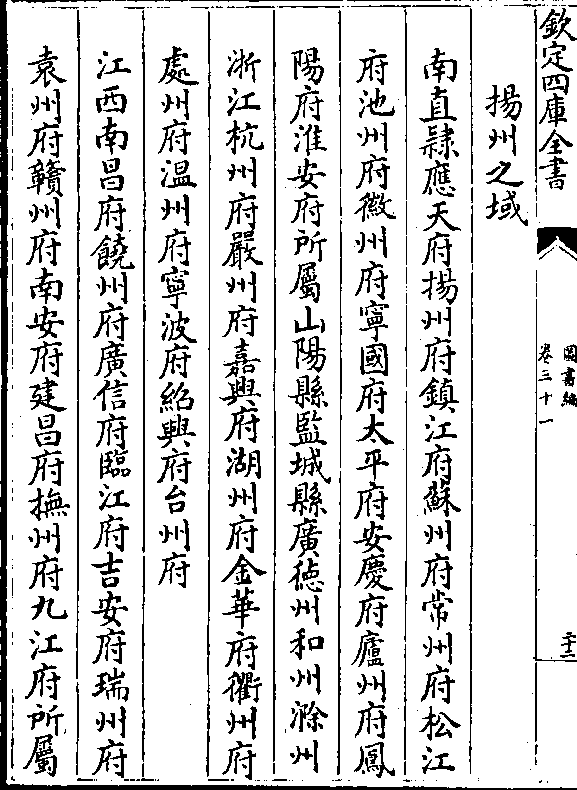 欽定四庫全書
圖書編
卷三十一
二十二
揚州之域
南直隸應天府揚州府鎮江府蘇州府常州府松江
府池州府徽州府寧國府太平府安慶府廬州府鳳
陽府淮安府所屬山陽縣監城縣廣徳州和州滁州
浙江杭州府嚴州府嘉興府湖州府金華府衢州府
處州府温州府寧波府紹興府台州府
江西南昌府饒州府廣信府臨江府吉安府瑞州府
袁州府贛州府南安府建昌府撫州府九江府所屬